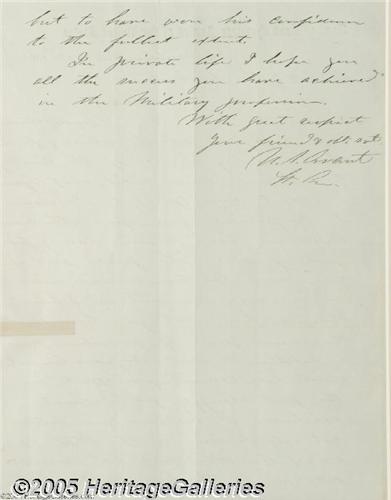 but to have won his confidence
to the fullest extent.
In private life I hope you
all the success you have achieved
in the Military profession.
With great respect
Your friend & obt. svt.
U. S. Grant
Lt. Gn.
©2005 HeritageGalleries